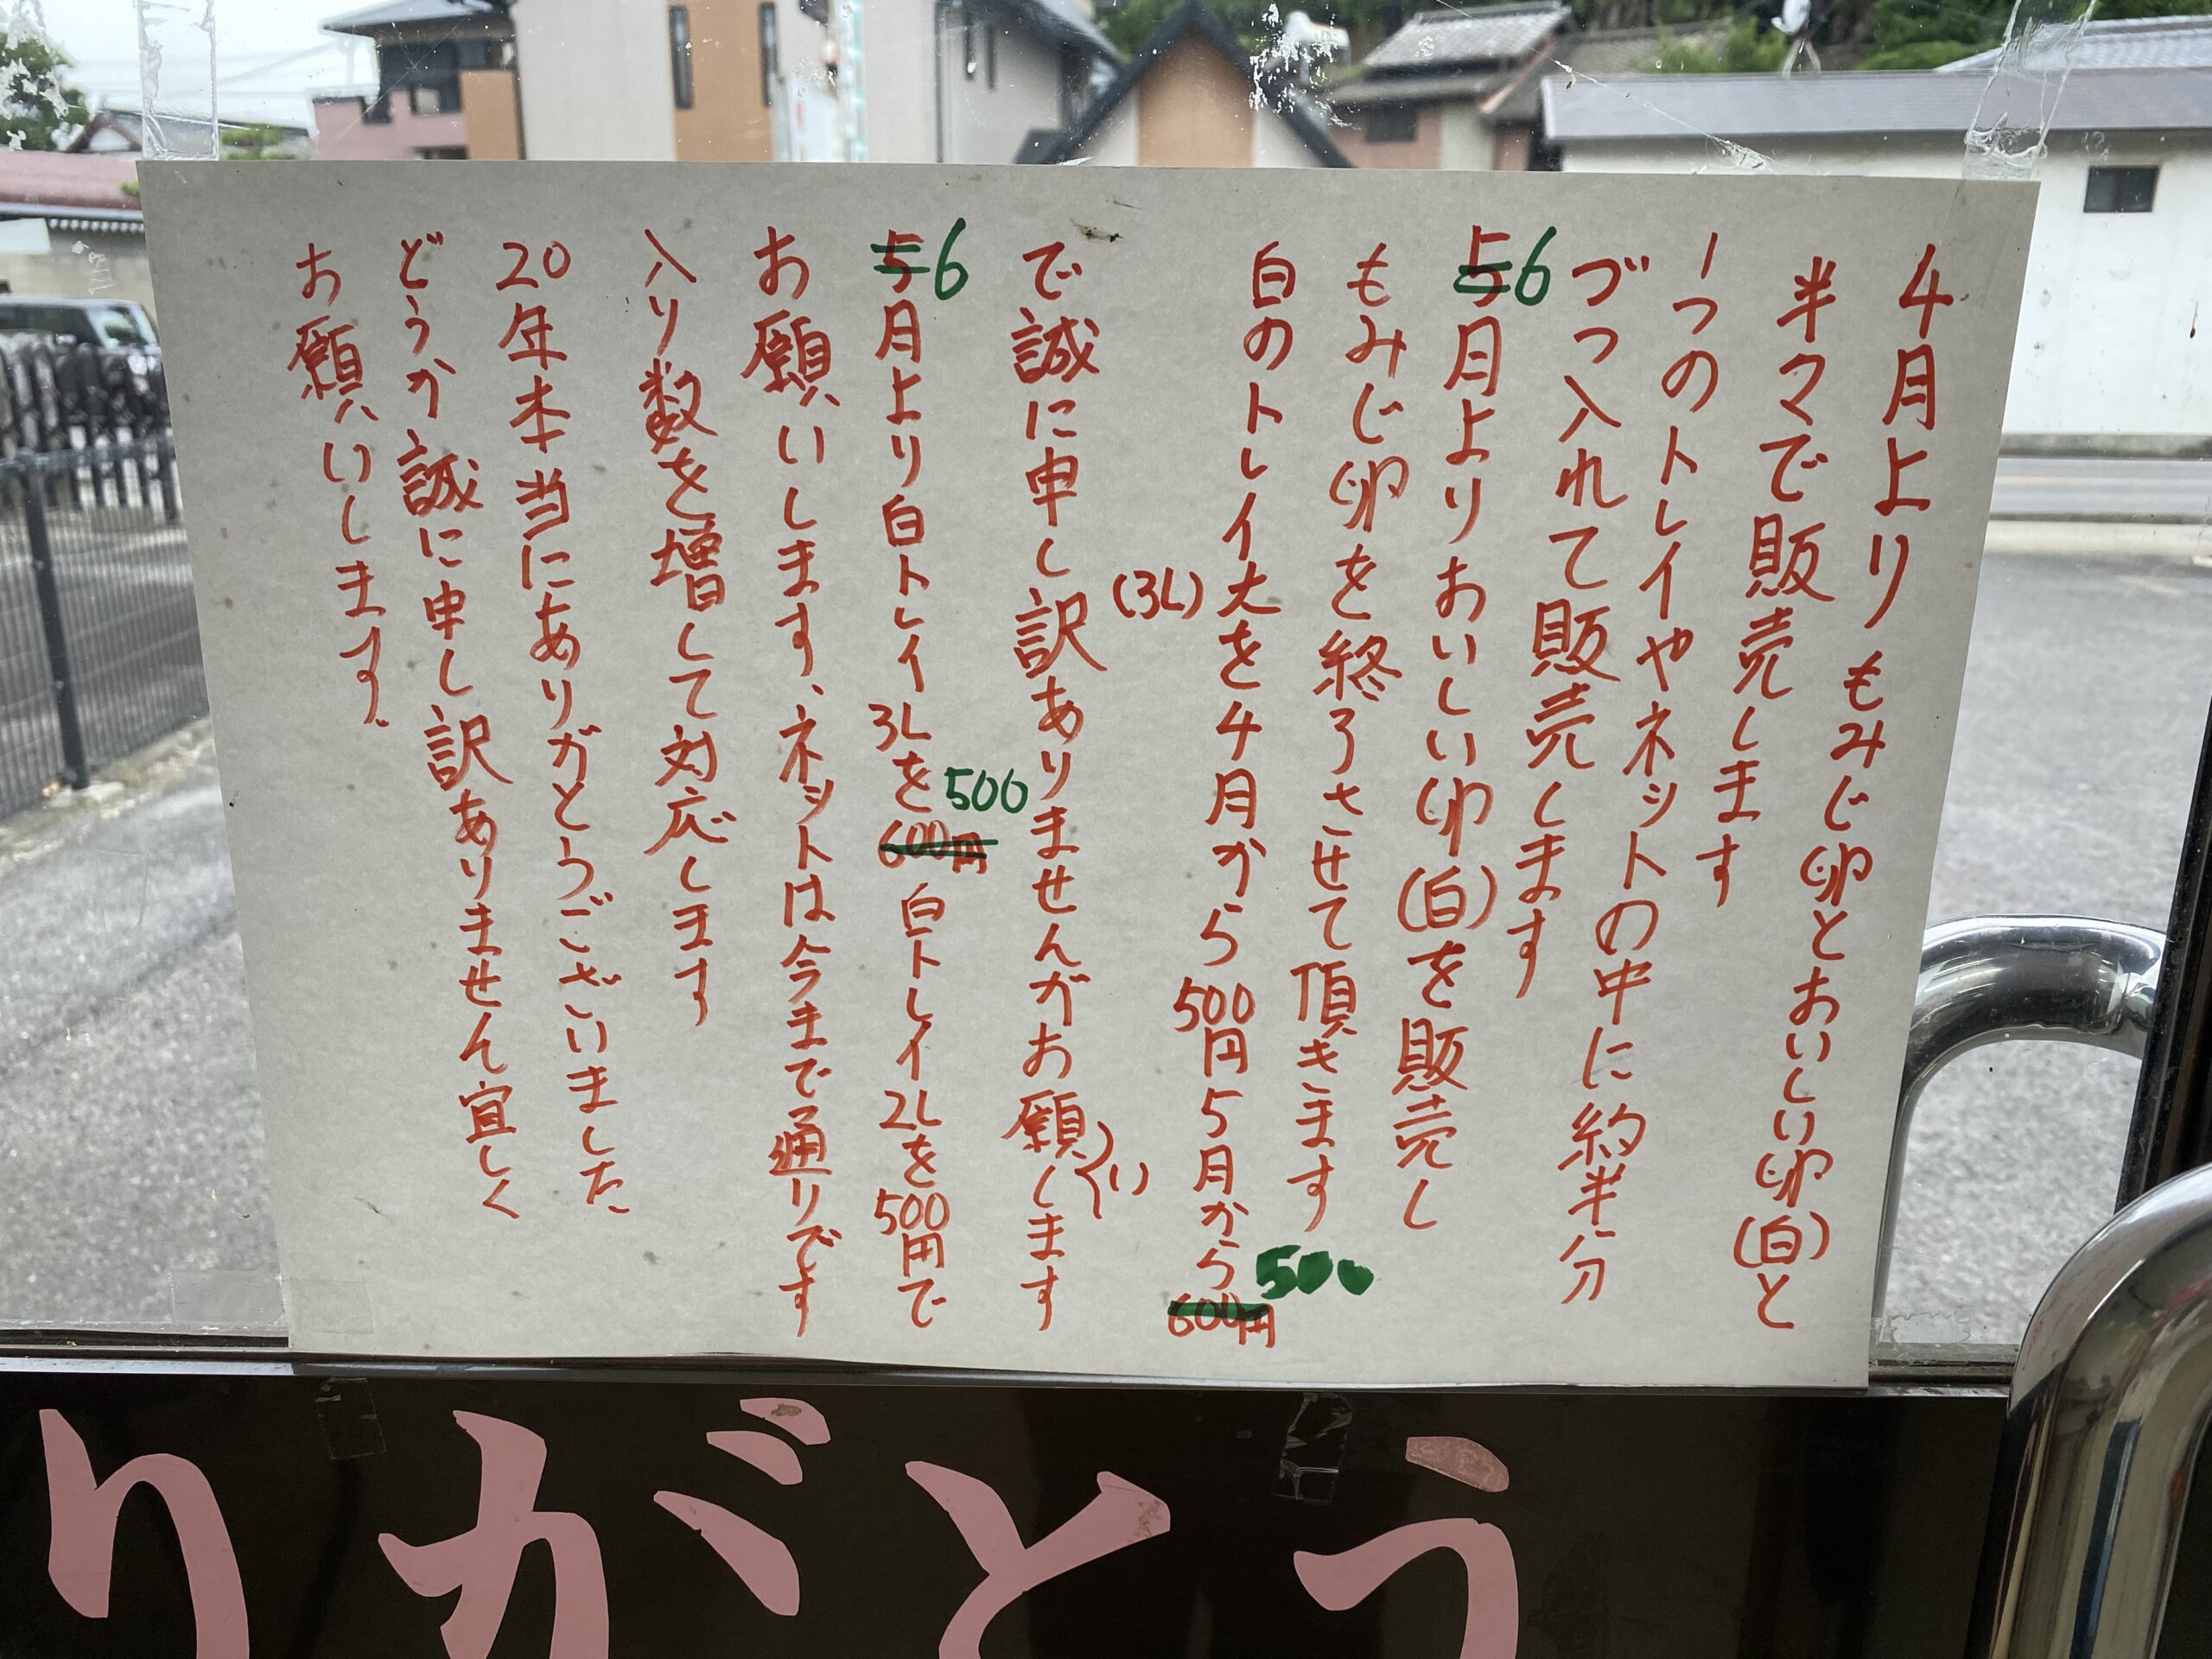 4月よりもみじ卵とおいしい卵(白)と
半々で販売します
1つのトレイやネットの中に約半分
づつ入れて販売します
56月よりおいしい卵(白)を販売し
もみじ卵を終了させて頂きます
白のトレイ大を4月から500円5月から600円500
(3L)
で誠に申し訳ありませんがお願いします
56月より白トレイ3Lを600円500白トレイ2Lを500円で
お願いします、ネットは今まで通りです
入り数を増して対応します
20年本当にありがとうございました
どうか誠に申し訳ありません宜しく
お願いします。
りがとう